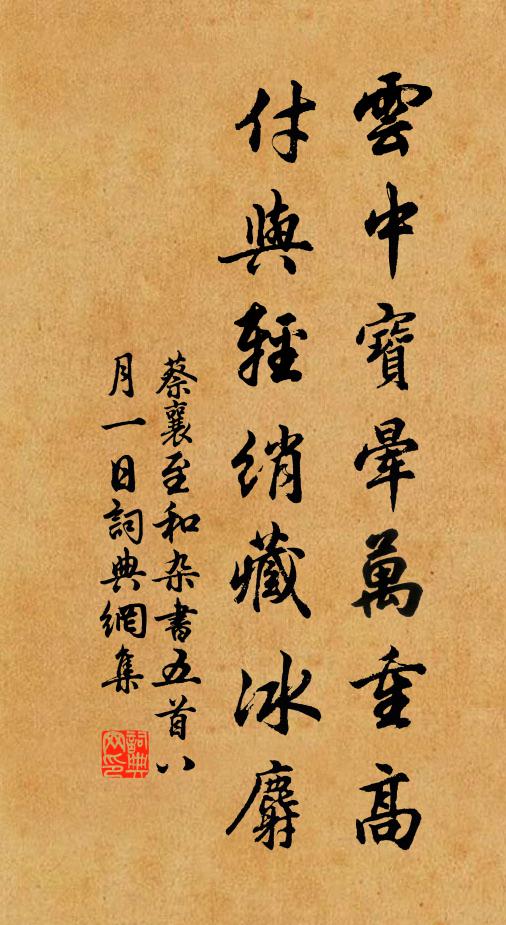 雲中寶暈萬重高
付與輕綃藏冰麝
蔡襄至和杂書五首八
月一日詞典網集
詞典網印